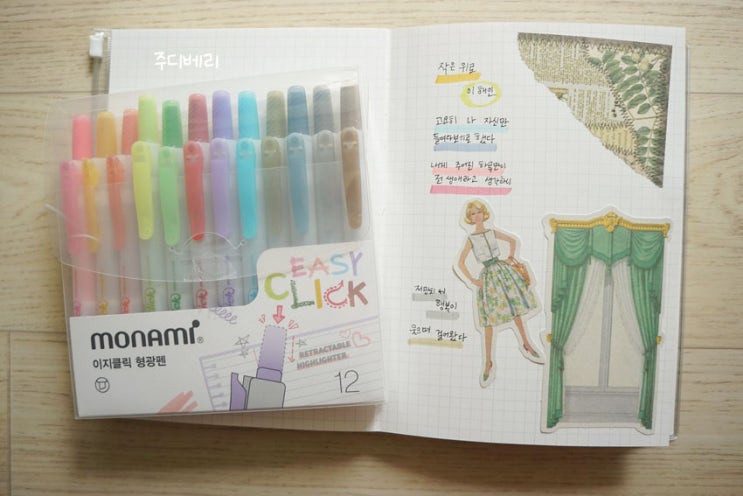 주디베리
EASY
CLICK
monami®
이지클릭 형광펜
RETRACTABLE
HIGHLIGHTER
12
작은 위로
이해인
고요히 나 자신만
들여다보기로 했다
내게 주어진 하루만이
전 생애라고 생각하니
저만치서
행복이
웃으며 걸어왔다